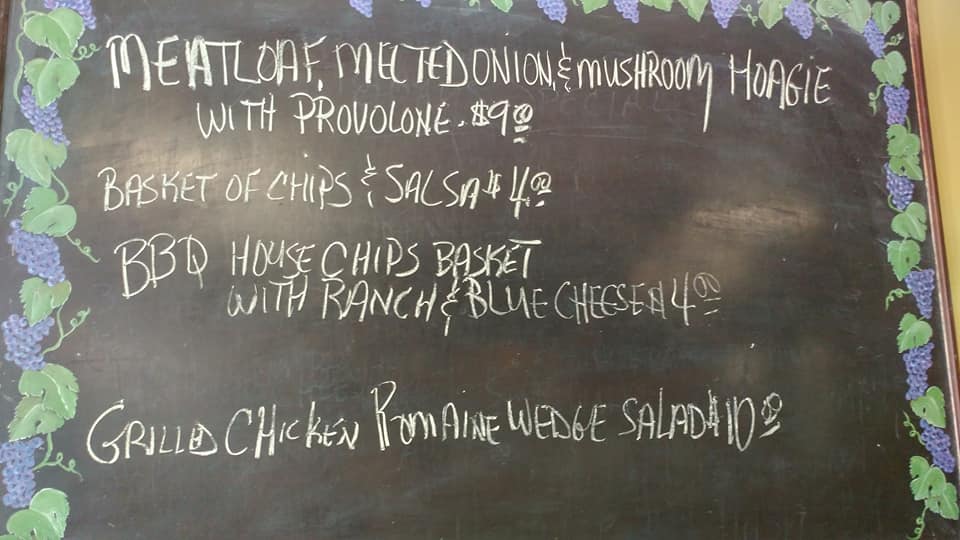 MEATLOAF, MELTED ONION, & MUSHROOM HOAGIE
WITH PROVOLONE. $9.00
BASKET OF CHIPS & SALSA $4.00
BBQ HOUSE CHIPS BASKET
WITH RANCH & BLUE CHEESE $4.00
GRILLED CHICKEN ROMAINE WEDGE SALAD $10.00